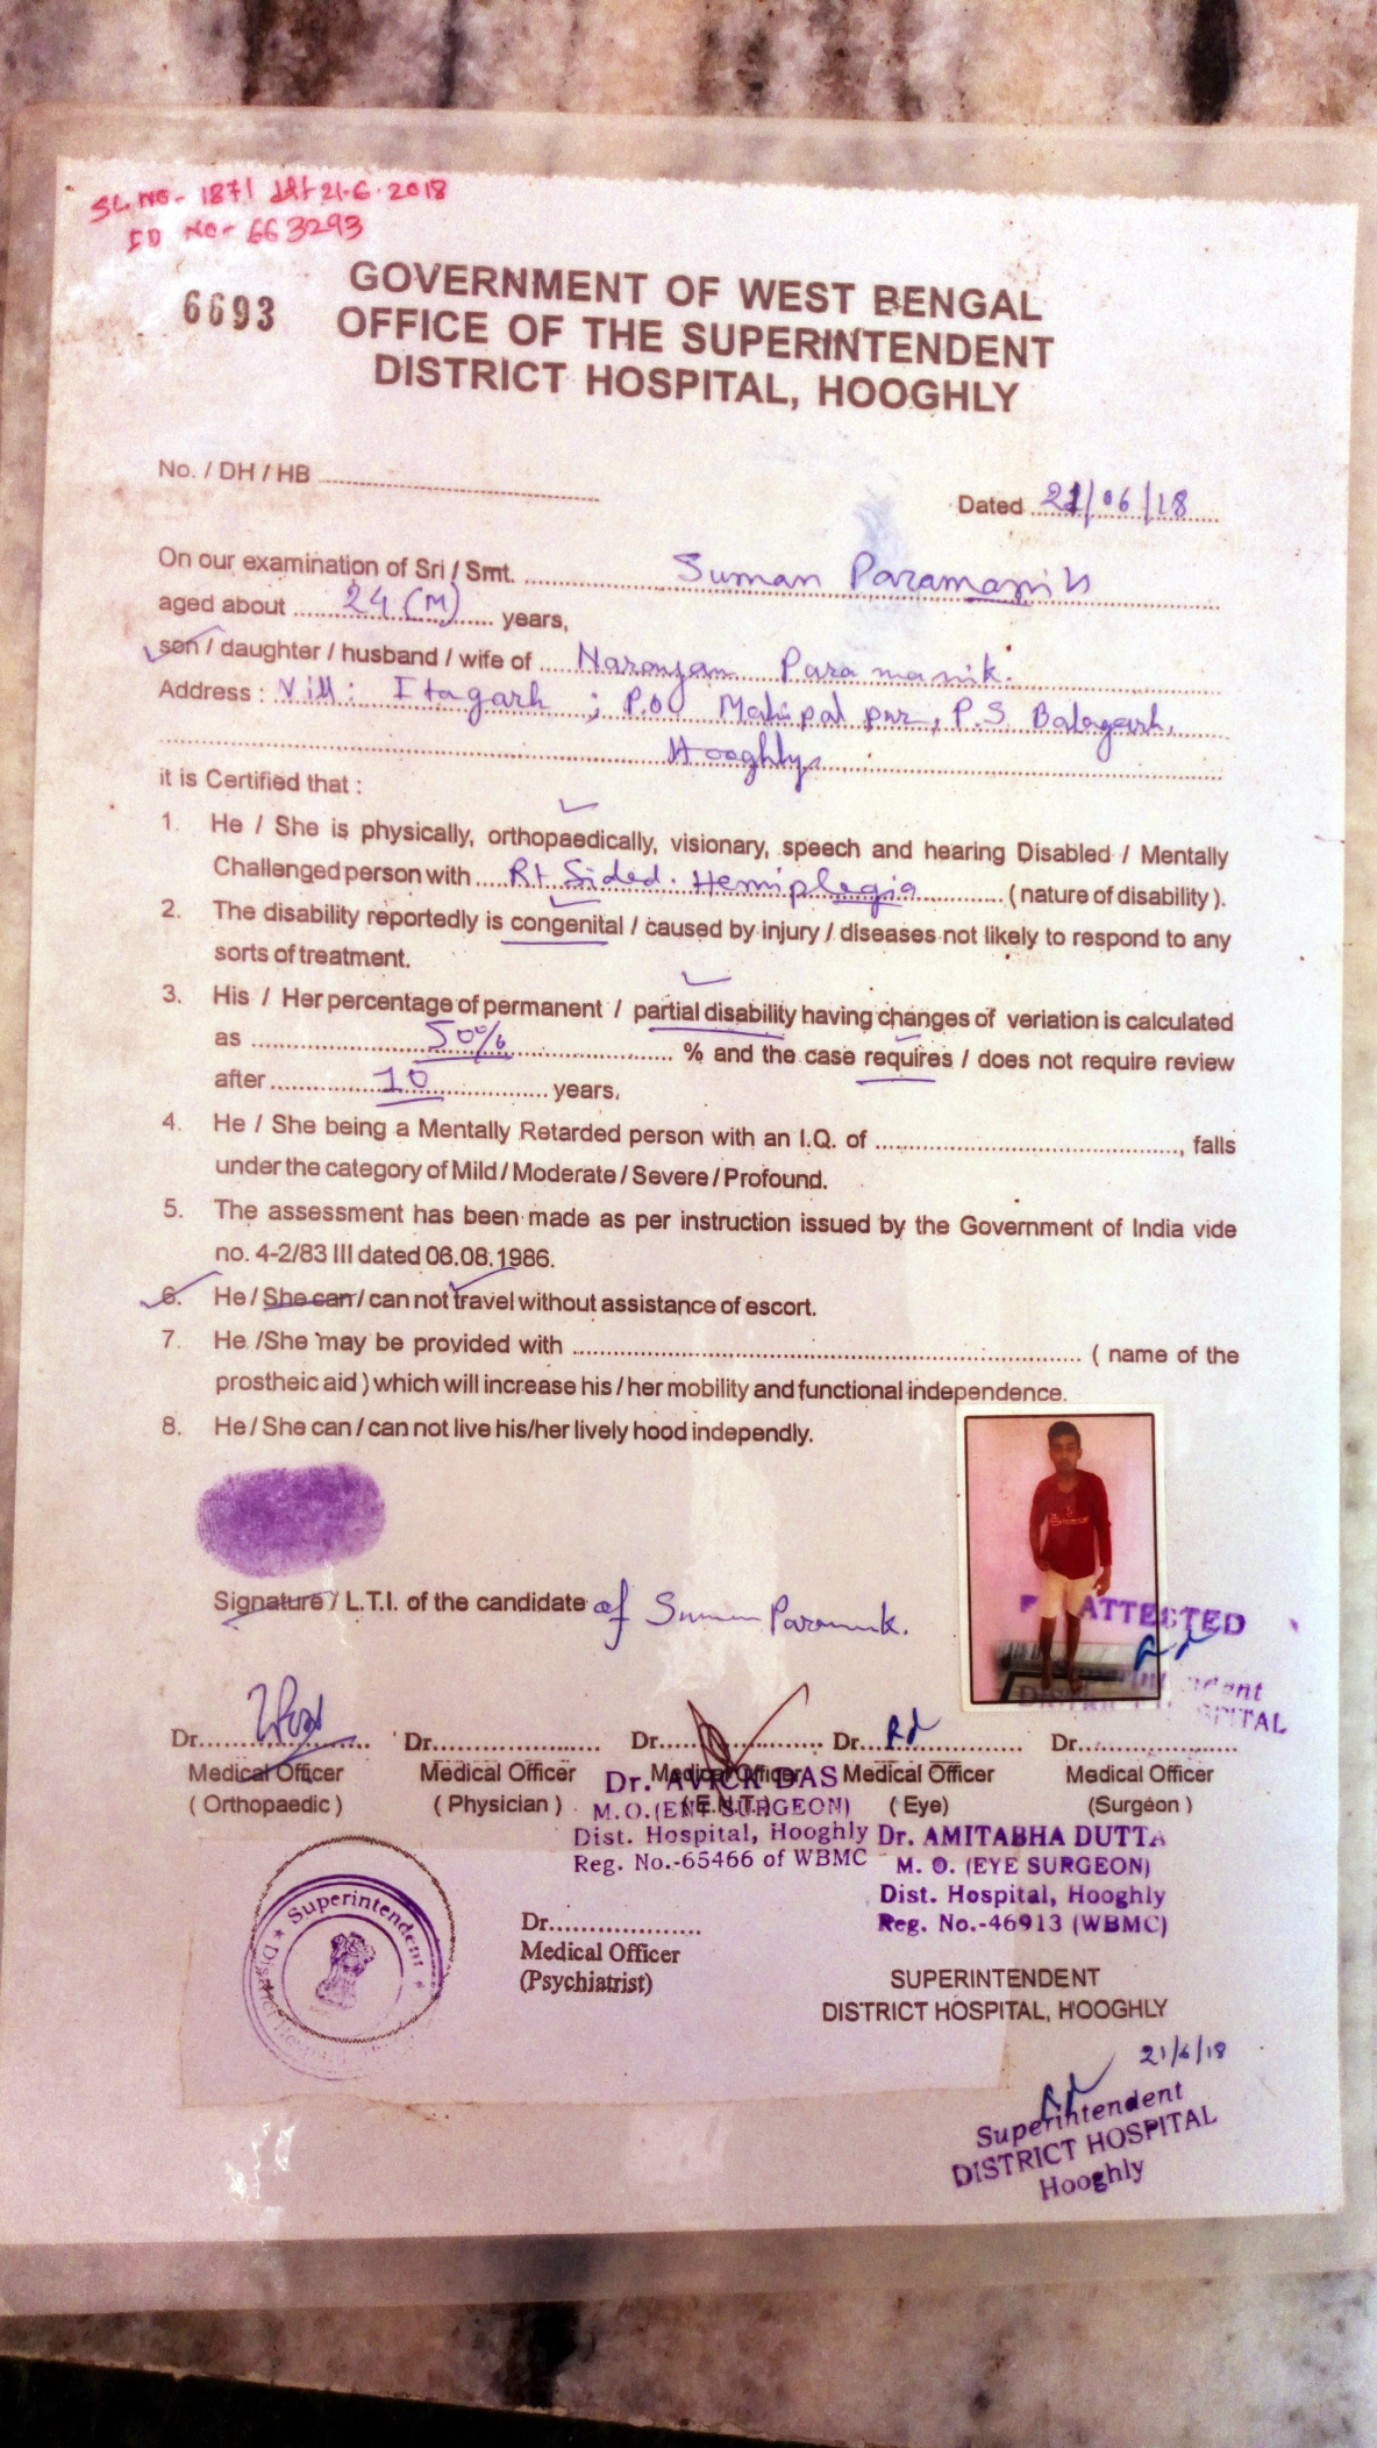 SL NO- 1871 dt 21.6.2018
ID NO- 663293
6693
GOVERNMENT OF WEST BENGAL
OFFICE OF THE SUPERINTENDENT
DISTRICT HOSPITAL, HOOGHLY
No. / DH / HB
Dated 21/06/18
On our examination of Sri / Smt. Suman Paramanik
aged about 24 (M) years,
son / daughter / husband / wife of Narayan Paramanik.
Address : Vill: Itagarh ; P.O Mahipalpur, P.S. Balagarh,
Hooghly
it is Certified that :
1. He / She is physically, orthopaedically, visionary, speech and hearing Disabled / Mentally
Challenged person with Rt Sided. Hemiplegia ( nature of disability ).
2. The disability reportedly is congenital / caused by injury / diseases not likely to respond to any
sorts of treatment.
3. His / Her percentage of permanent / partial disability having changes of veriation is calculated
as 50% % and the case requires / does not require review
after 10 years.
4. He / She being a Mentally Retarded person with an I.Q. of , falls
under the category of Mild / Moderate / Severe / Profound.
5. The assessment has been made as per instruction issued by the Government of India vide
no. 4-2/83 III dated 06.08.1986.
6. He / She can / can not travel without assistance of escort.
7. He /She may be provided with ( name of the
prostheic aid ) which will increase his / her mobility and functional independence.
8. He / She can / can not live his/her lively hood independly.
Signature / L.T.I. of the candidate of Suman Paramanik.
ATTESTED
Dr. Dr. Dr. Dr. Dr.
Medical Officer Medical Officer Medical Officer Medical Officer Medical Officer
( Orthopaedic ) ( Physician ) (E.N.T.) ( Eye) (Surgeon )
Dr. AVICK DAS
M.O.(ENT SURGEON)
Dist. Hospital, Hooghly
Reg. No.-65466 of WBMC
Dr. AMITABHA DUTTA
M. O. (EYE SURGEON)
Dist. Hospital, Hooghly
Reg. No.-46913 (WBMC)
Superintendent
Dr.
Medical Officer
(Psychiatrist)
SUPERINTENDENT
DISTRICT HOSPITAL, HOOGHLY
21/6/18
Superintendent
DISTRICT HOSPITAL
Hooghly